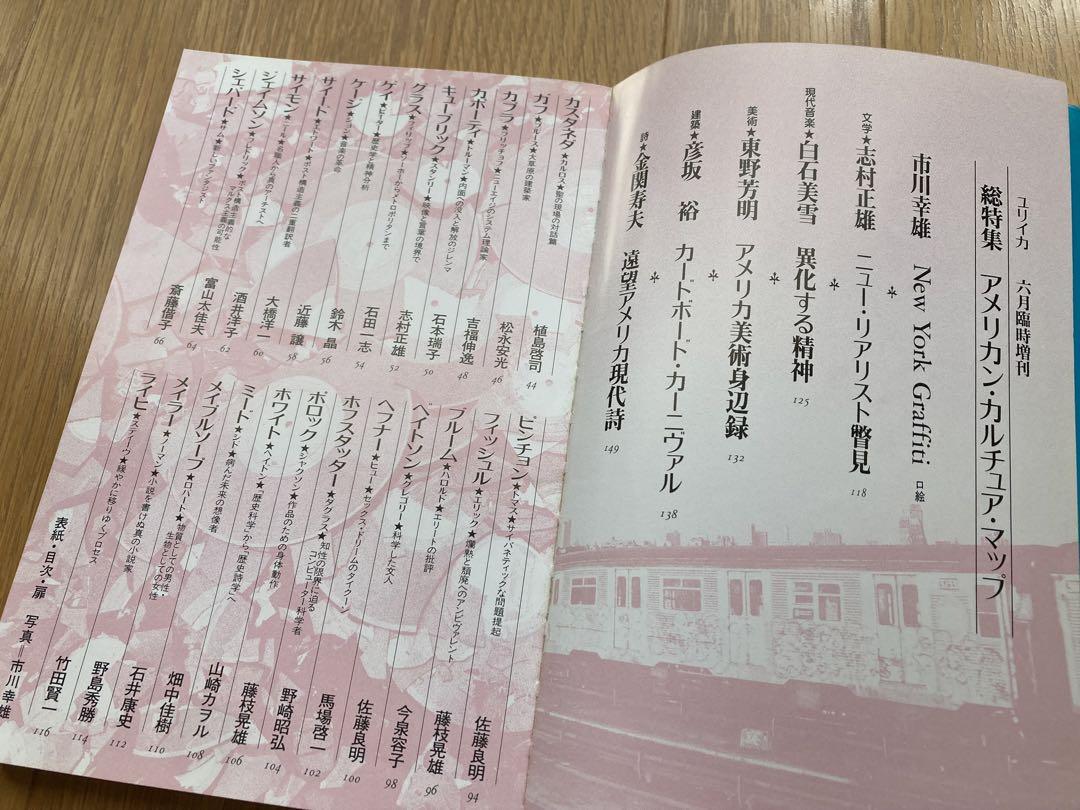 ユリイカ 六月臨時増刊
総特集 アメリカン・カルチュア・マップ
市川幸雄 New York Graffiti 口絵
文学★志村正雄 ニュー・リアリスト瞥見 118
現代音楽★白石美雪 異化する精神 125
美術★東野芳明 アメリカ美術身辺録 132
建築★彦坂 裕 カードボード・カーニヴァル 138
詩★金関寿夫 遠望アメリカ現代詩 149
カスタネダ★カルロス★知の現場の対話篇 植島啓司 44
ガフ★ブルース★大草原の建築家 松永安光 46
カプラ★フリッチョフ★ニューエイジのシステム理論家 吉福伸逸 48
カポーティ★トルーマン★内面への没入と解放のジレンマ 石本瑞子 50
キューブリック★スタンリー★映像と言葉の境界で 志村正雄 52
グラス★フィリップ★ソーホーからメトロポリタンまで 石田一志 54
ゲイ★ピーター★歴史学と精神分析 鈴木晶 56
ケージ★ジョン★音楽の革命 近藤譲 58
サイード★エドワード★ポスト構造主義の二重翻訳者 大橋洋一 60
サイモン★ニール★名職人か真のアーチストへ 酒井洋子 62
ジェイムソン★フレドリック★ポスト構造主義的なマルクス主義の可能性 富山太佳夫 64
シェパード★サム★新しいファンタジスト 斎藤偕子 66
ピンチョン★トマス★サイバネティックな問題提起 佐藤良明 94
フィッシュル★エリック★爛熟と頽廃へのアンビヴァレント 藤枝晃雄 96
ブルーム★ハロルド★エリートの批評 今泉容子 98
ベイトソン★グレゴリー★科学した文人 佐藤良明 100
ヘフナー★ヒュー★セックス・ドリームのタイクーン 馬場啓一 102
ホフスタッター★ダグラス★知性の限界に迫るコンピューター科学者 野崎昭弘 104
ポロック★ジャクソン★作品のための身体動作 藤枝晃雄 106
ホワイト★ヘイドン★「歴史科学」から「歴史詩学」へ 山崎カヲル 108
ミード★シド★病んだ未来の想像者 畑中佳樹 110
メイプルソープ★ロバート★物質としての男性・生物としての女性 石井康史 112
メイラー★ノーマン★小説を書けぬ真の小説家 野島秀勝 114
ライヒ★スティーヴ★緩やかに移りゆくプロセス 竹田賢一 116
表紙・目次・扉 写真＝市川幸雄